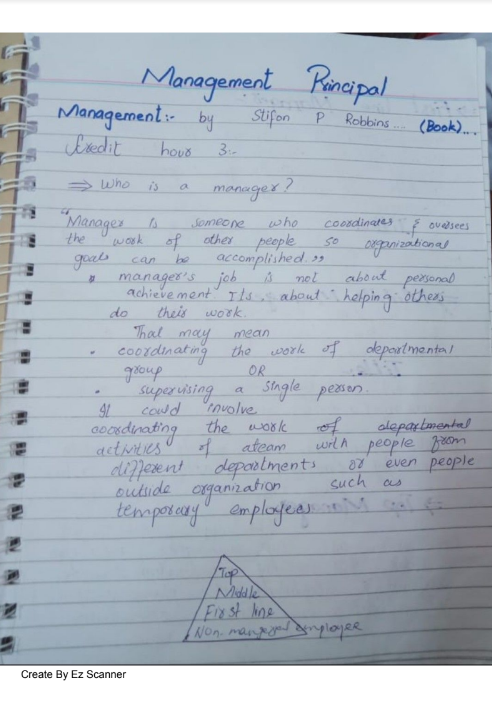 Management Principal
Management:- by Stifon P Robbins... (Book)...
Credit hour 3:-
⇒ Who is a manager?
"Manager is someone who coordinates & oversees
the work of other people so organizational
goals can be accomplished."
manager's job is not about personal
achievement Its about helping others
do their work.
That may mean
• coordinating the work of departmental
group OR
• supervising a single person.
It could involve
coordinating the work of departmental
activities of ateam with people from
different departments or even people
outside organization such as
temporary employees
Top
Middle
First line
Non. manegeal employee
Create By Ez Scanner